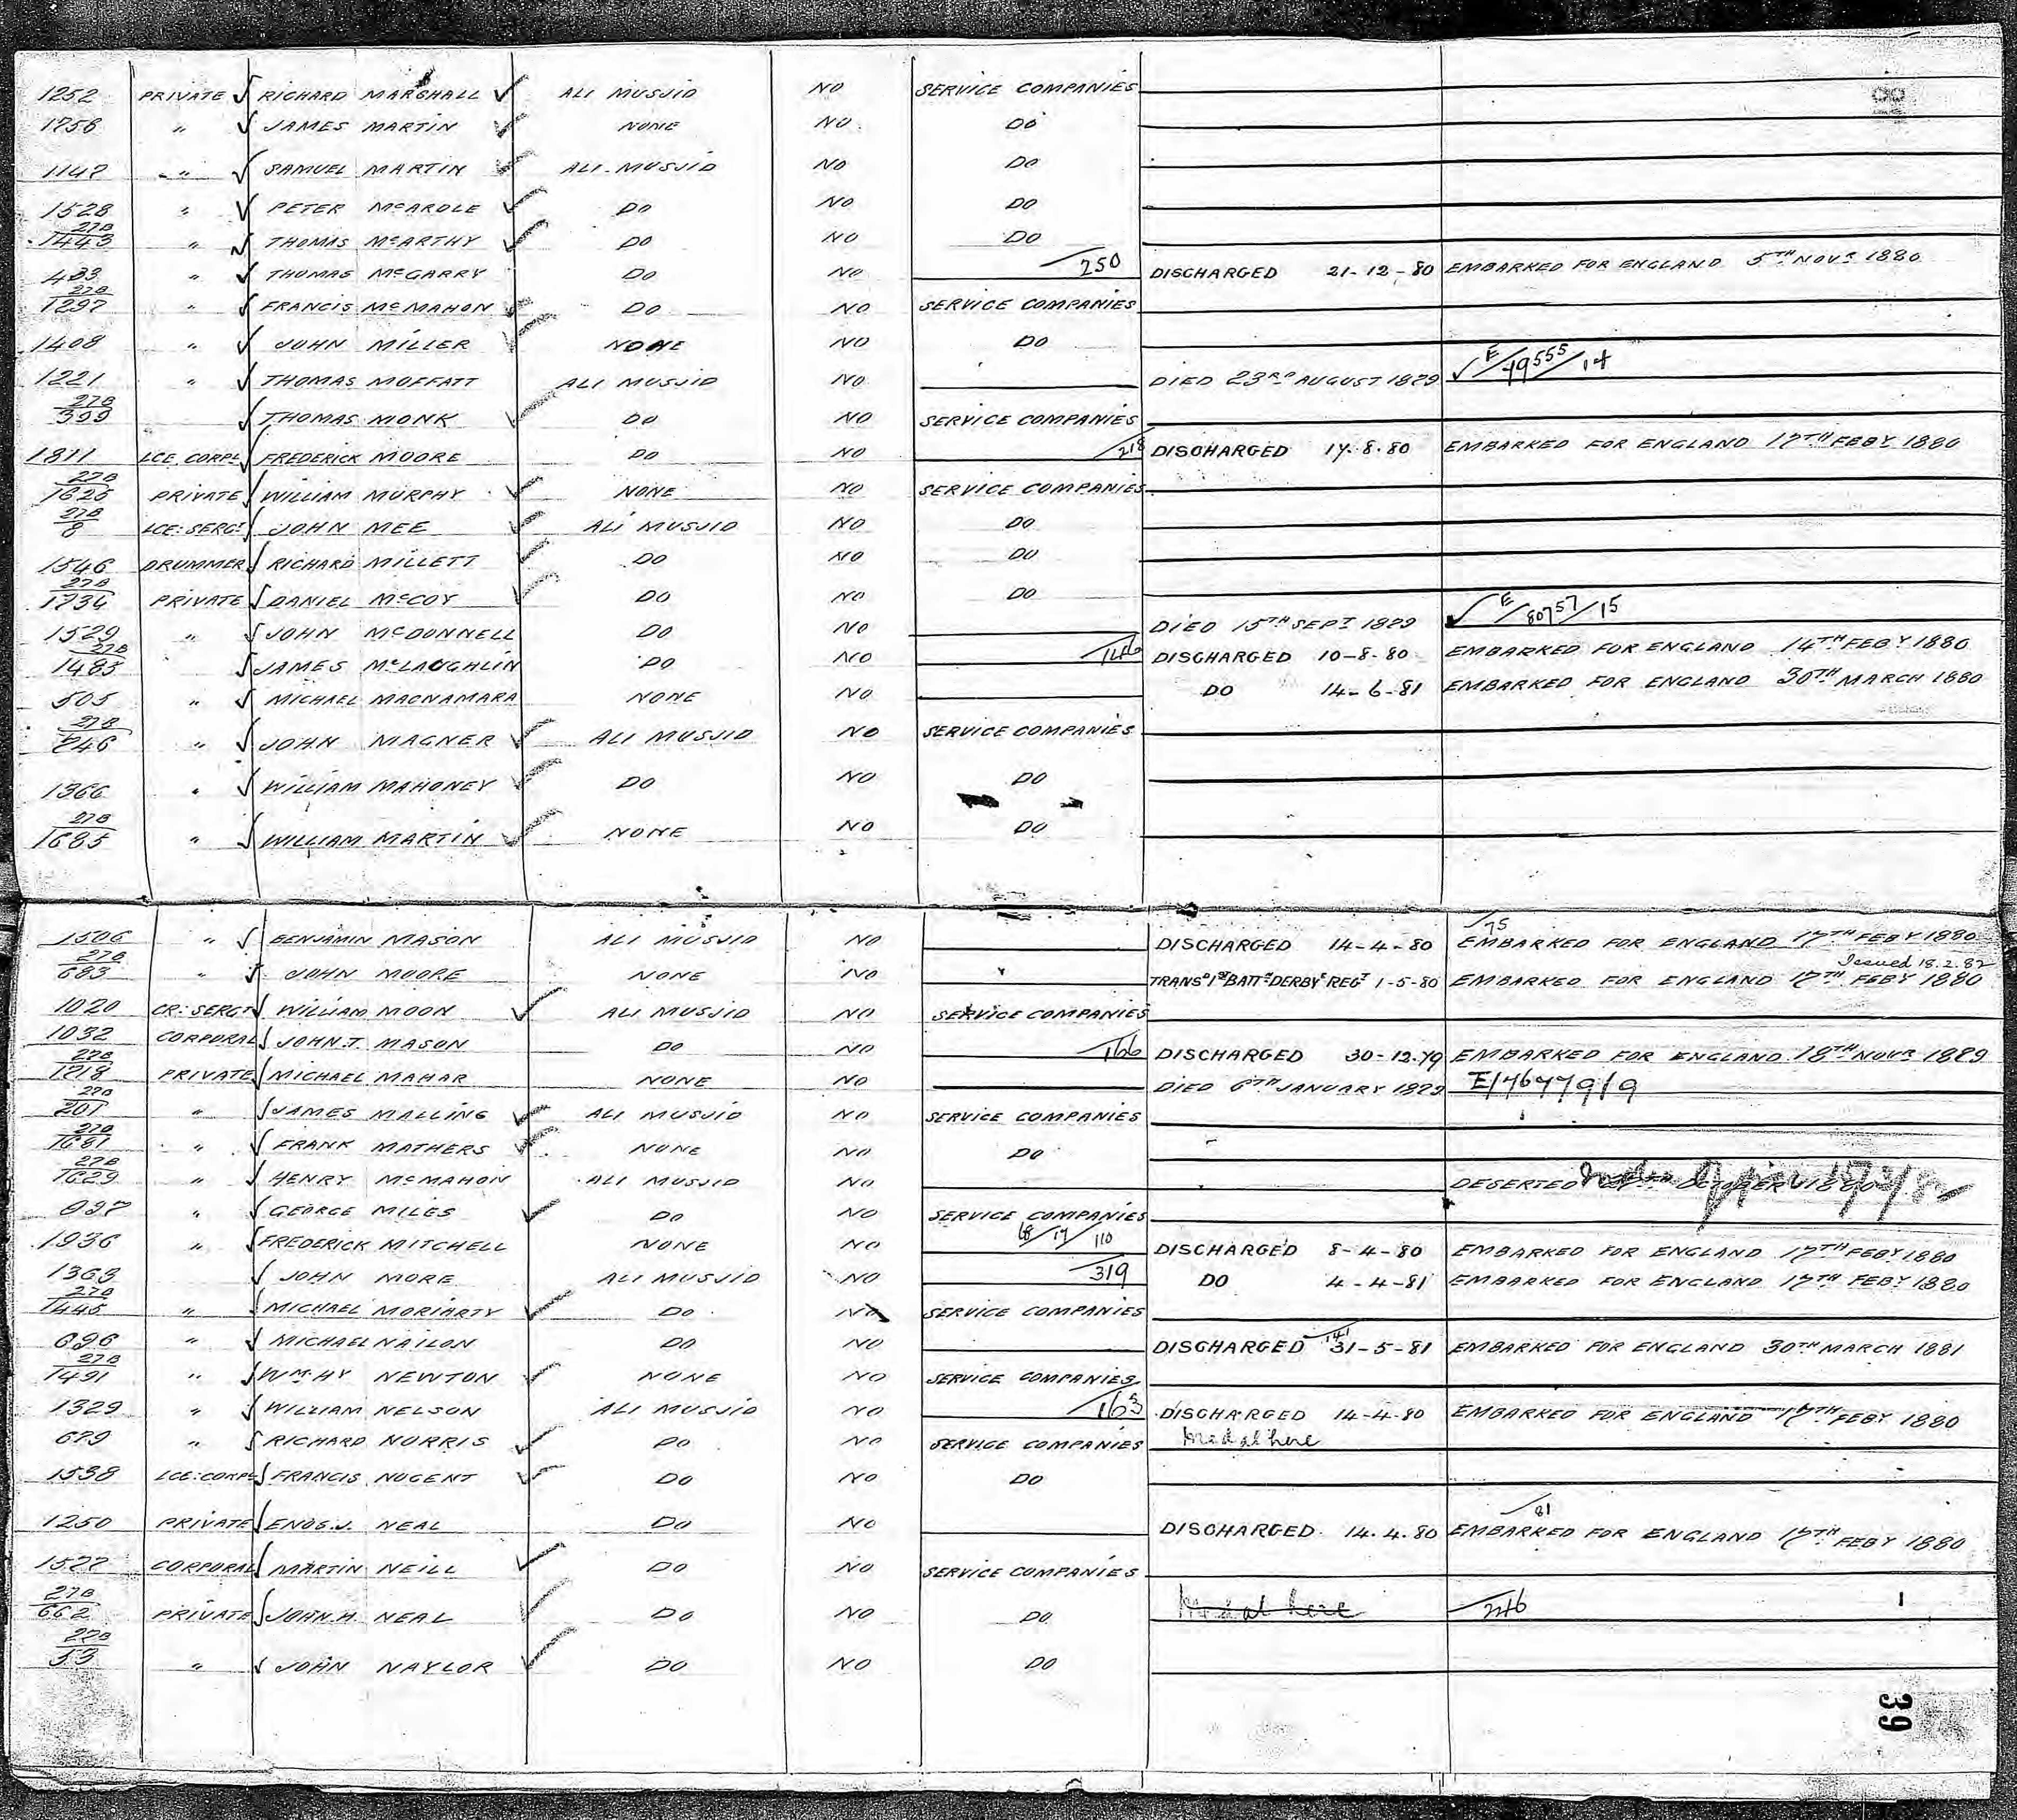 1252 PRIVATE √ RICHARD MARSHALL ✓ ALI MUSJID NO SERVICE COMPANIES
1756 " √ JAMES MARTIN ✓ NONE NO. DO
1142 " √ SAMUEL MARTIN ✓ ALI MUSJID NO DO
1528 " √ PETER McARDLE ✓ DO NO DO
27B/1443 " √ THOMAS McARTHY ✓ DO NO DO
483 " √ THOMAS McGARRY DO NO 250 DISCHARGED 21-12-80 EMBARKED FOR ENGLAND 5TH NOVR 1880
27B/1297 " √ FRANCIS McMAHON ✓ DO NO SERVICE COMPANIES
1408 " √ JOHN MILLER ✓ NONE NO DO
1221 " √ THOMAS MOFFATT ALI MUSJID NO DIED 23RD AUGUST 1879 ✓ E/79555/14
27B/399 √ THOMAS MONK ✓ DO NO SERVICE COMPANIES
1811 LCE CORPL √ FREDERICK MOORE DO NO 218 DISCHARGED 17.8.80 EMBARKED FOR ENGLAND 17TH FEBY 1880
27B/1625 PRIVATE √ WILLIAM MURPHY ✓ NONE NO SERVICE COMPANIES
27B/8 LCE: SERGT √ JOHN MEE ✓ ALI MUSJID NO DO
1546 DRUMMER √ RICHARD MILLETT ✓ DO NO DO
27B/1734 PRIVATE √ DANIEL McCOY ✓ DO NO DO
1529 " √ JOHN McDONNELL DO NO DIED 15TH SEPT 1879 ✓ E/80757/15
27B/1485 √ JAMES McLAUGHLIN DO NO 146 DISCHARGED 10-8-80 EMBARKED FOR ENGLAND 14TH FEBY 1880
505 " √ MICHAEL MACNAMARA NONE NO DO 14-6-81 EMBARKED FOR ENGLAND 30TH MARCH 1880
27B/746 " √ JOHN MAGNER ✓ ALI MUSJID NO SERVICE COMPANIES
1366 " √ WILLIAM MAHONEY ✓ DO NO DO
27B/1685 " √ WILLIAM MARTIN ✓ NONE NO DO
1506 " √ BENJAMIN MASON ALI MUSJID NO DISCHARGED 14-4-80 75 EMBARKED FOR ENGLAND 17TH FEBY 1880
Issued 18.2.82
27B/683 " √ JOHN MOORE NONE NO TRANSD 1ST BATTN DERBYE REGT 1-5-80 EMBARKED FOR ENGLAND 17TH FEBY 1880
1020 CR: SERGT √ WILLIAM MOON ✓ ALI MUSJID NO SERVICE COMPANIES
1032 CORPORAL √ JOHN.T. MASON DO NO 166 DISCHARGED 30-12-79 EMBARKED FOR ENGLAND 18TH NOVR 1879
27B/1718 PRIVATE √ MICHAEL MAHAR NONE NO DIED 6TH JANUARY 1879 E/76779/9
27B/201 " √ JAMES MALLING ✓ ALI MUSJID NO SERVICE COMPANIES
27B/1681 " √ FRANK MATHERS ✓ NONE NO DO
27B/1629 " √ HENRY McMAHON ALI MUSJID NO DESERTED OCTOBER 1880
897 " √ GEORGE MILES ✓ DO NO SERVICE COMPANIES
1936 " √ FREDERICK MITCHELL NONE NO 68/17/110 DISCHARGED 8-4-80 EMBARKED FOR ENGLAND 17TH FEBY 1880
1363 √ JOHN MORE ALI MUSJID NO 319 DO 4-4-81 EMBARKED FOR ENGLAND 17TH FEBY 1880
27B/1445 " √ MICHAEL MORIARTY ✓ DO NO SERVICE COMPANIES
696 " √ MICHAEL NAILON DO NO DISCHARGED 141 31-5-81 EMBARKED FOR ENGLAND 30TH MARCH 1881
27B/1491 " √ WM HY NEWTON ✓ NONE NO SERVICE COMPANIES
1329 " √ WILLIAM NELSON ALI MUSJID NO 163 DISCHARGED 14-4-80 EMBARKED FOR ENGLAND 17TH FEBY 1880
679 " √ RICHARD NORRIS ✓ DO NO SERVICE COMPANIES Medal here
1538 LCE: CORPL √ FRANCIS NUGENT ✓ DO NO DO
1250 PRIVATE √ ENOS.J. NEAL DO NO DISCHARGED. 14.4.80 81 EMBARKED FOR ENGLAND 17TH FEBY 1880
1577 CORPORAL √ MARTIN NEILL ✓ DO NO SERVICE COMPANIES
27B/662 PRIVATE √ JOHN.H. NEAL ✓ DO NO DO Medal here 246
27B/53 " √ JOHN NAYLOR ✓ DO NO DO
39